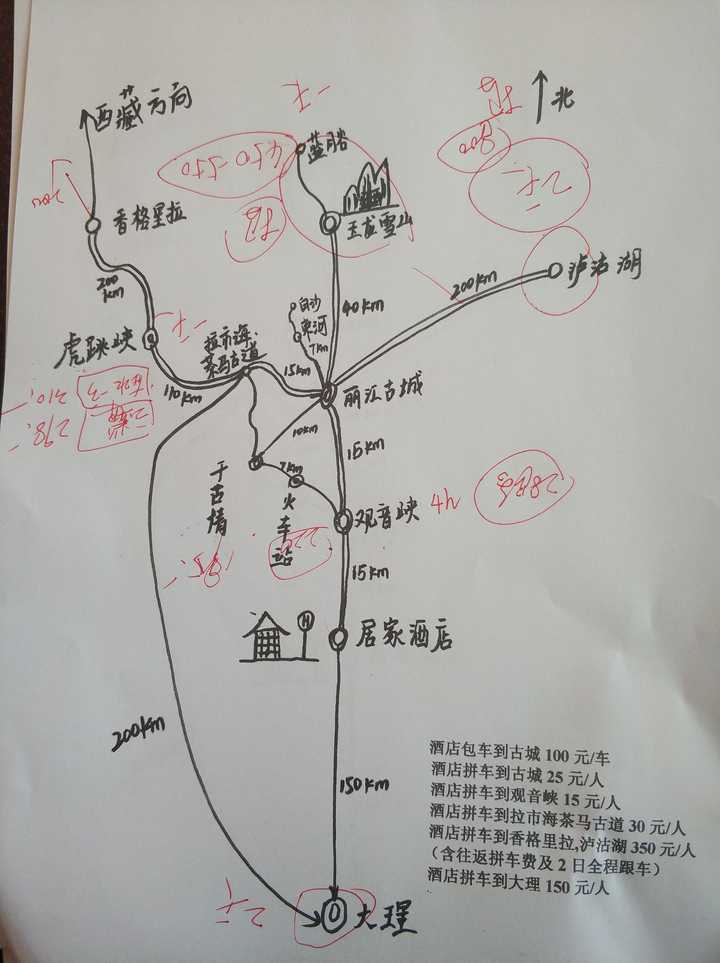 西藏方向
北
蓝月谷
450-550
玉龙雪山
香格里拉
200
km
泸沽湖
200km
白沙
束河
7km
40km
虎跳峡
拉市海·
茶马古道
15km
110km
丽江古城
10km
15km
7km
火车站
观音峡
4h
15km
居家酒店
H
200km
150km
大理
酒店包车到古城 100 元/车
酒店拼车到古城 25 元/人
酒店拼车到观音峡 15 元/人
酒店拼车到拉市海茶马古道 30 元/人
酒店拼车到香格里拉,泸沽湖 350 元/人
（含往返拼车费及 2 日全程跟车）
酒店拼车到大理 150 元/人